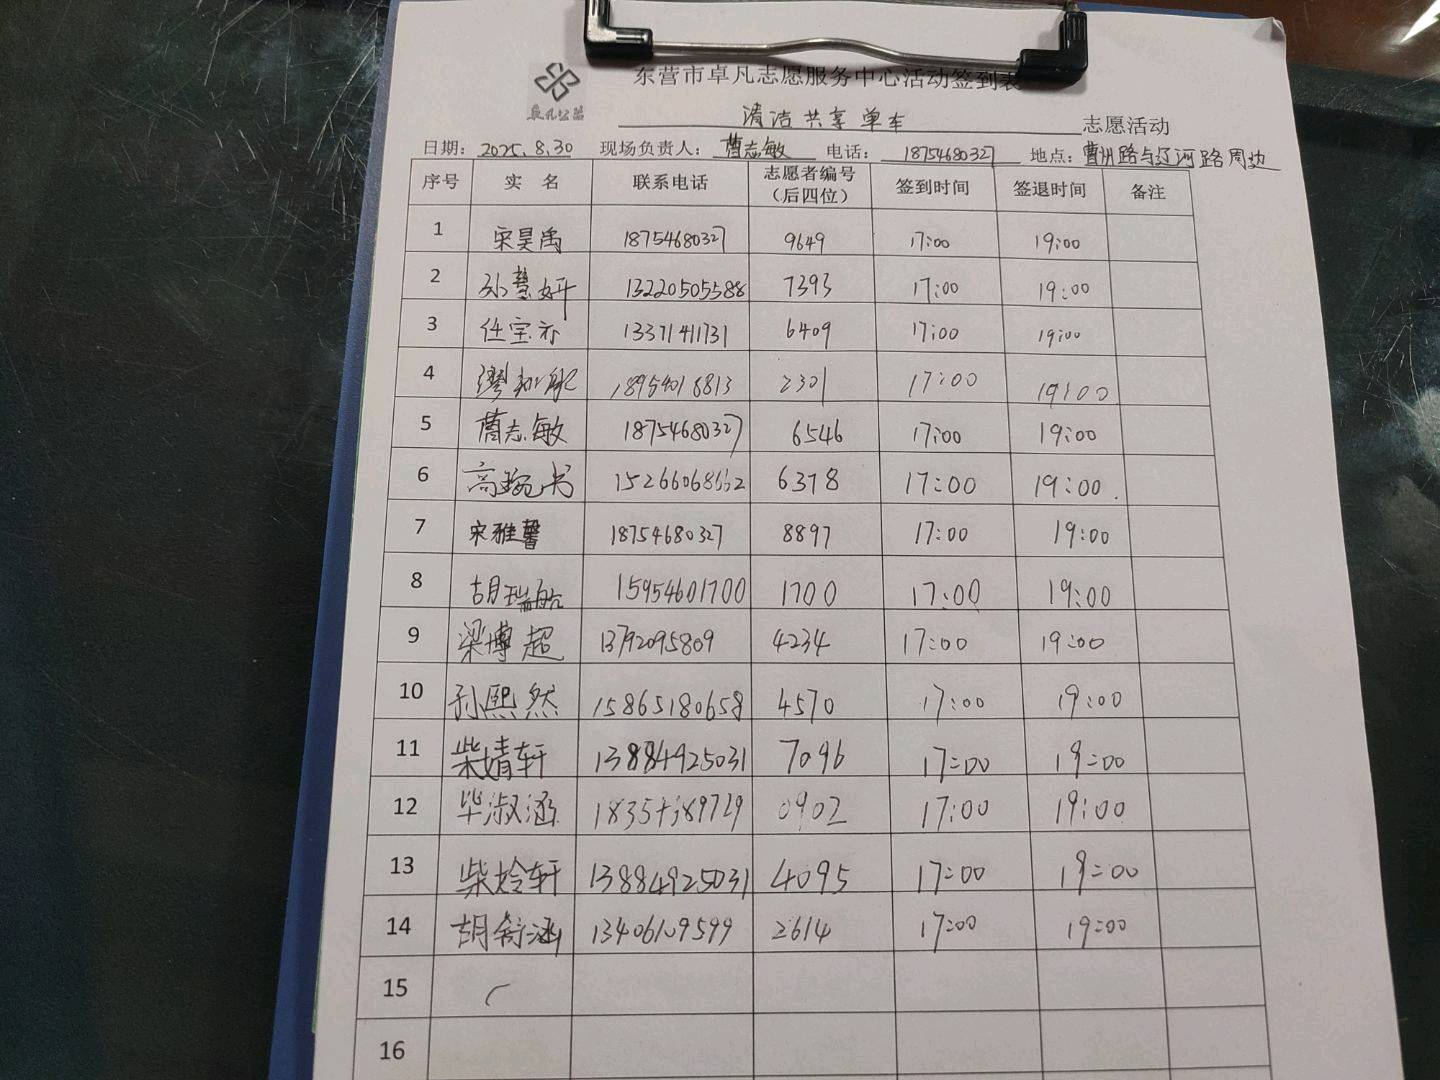 东营市卓凡志愿服务中心活动签到表
卓凡公益
清洁共享单车 志愿活动
日期: 2025.8.30 现场负责人: 曹志敏 电话: 18754680327 地点: 曹州路与辽河路周边
序号 实 名 联系电话 志愿者编号（后四位） 签到时间 签退时间 备注
1 宋昊禹 18754680327 9649 17:00 19:00
2 孙慧妍 13220505588 7393 17:00 19:00
3 任宝亦 13371411731 6409 17:00 19:00
4 18954018813 2301 17:00 19:00
5 曹志敏 18754680327 6546 17:00 19:00
6 高琬书 6378 17:00 19:00
7 宋雅馨 18754680327 8897 17:00 19:00
8 胡瑞皓 15954601700 1700 17:00 19:00
9 梁博超 13792095809 4234 17:00 19:00
10 孙熙然 15865180658 4570 17:00 19:00
11 柴婧轩 13884925031 7096 17:00 19:00
12 毕淑涵 0902 17:00 19:00
13 柴姈轩 13884925031 4095 17:00 19:00
14 胡舒涵 13406109599 2614 17:00 19:00
15
16